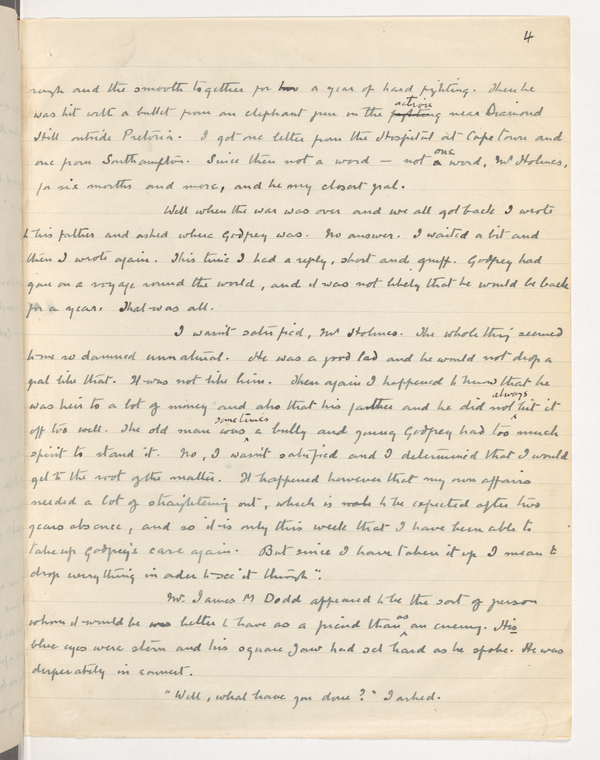 4
rough and the smooth together for a year of hard fighting. Then he
action
was hit with a bullet from an elephant gun in the fighting near Diamond
Hill outside Pretoria. I got one letter from the Hospital at Cape Town and
one
one from Southampton. Since then not a word — not a word, Mr Holmes,
for six months and more, and he my closest pal.
Well when the war was over and we all got back I wrote
to his father and asked where Godfrey was. No answer. I waited a bit and
then I wrote again. This time I had a reply, short and gruff. Godfrey had
gone on a voyage round the world, and it was not likely that he would be back
for a year. That was all.
I wasn't satisfied, Mr Holmes. The whole thing seemed
to me so damned unnatural. He was a good lad and he would not drop a
pal like that. It was not like him. Then again I happened to know that he
always
was heir to a lot of money and also that his father and he did not hit it
sometimes
off too well. The old man was a bully and young Godfrey had too much
spirit to stand it. No, I wasn't satisfied and I determined that I would
get to the root of the matter. It happened however that my own affairs
needed a lot of straightening out, which is to be expected after two
years absence, and so it is only this week that I have been able to
take up Godfrey's case again. But since I have taken it up I mean to
drop everything in order to see it through".
Mr. James M Dodd appeared to be the sort of person
as
whom it would be better to have as a friend than an enemy. His
blue eyes were stern and his square jaw had set hard as he spoke. He was
desperately in earnest.
"Well, what have you done?" I asked.